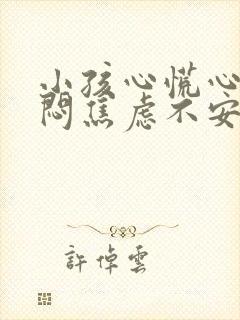 小孩心慌心
闷焦虑不安
許倬雲